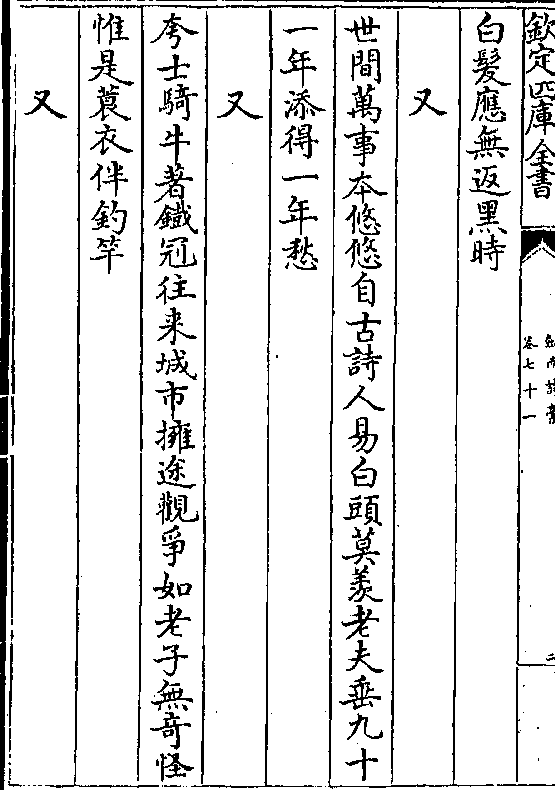 欽定四庫全書
劍南詩藁
卷七十一
二
白髮應無返黑時
又
世間萬事本悠悠自古詩人易白頭莫羨老夫垂九十
一年添得一年愁
又
夸士騎牛著鐵冠往来城市擁途觀爭如老子無竒怪
惟是蓑衣伴釣竿
又